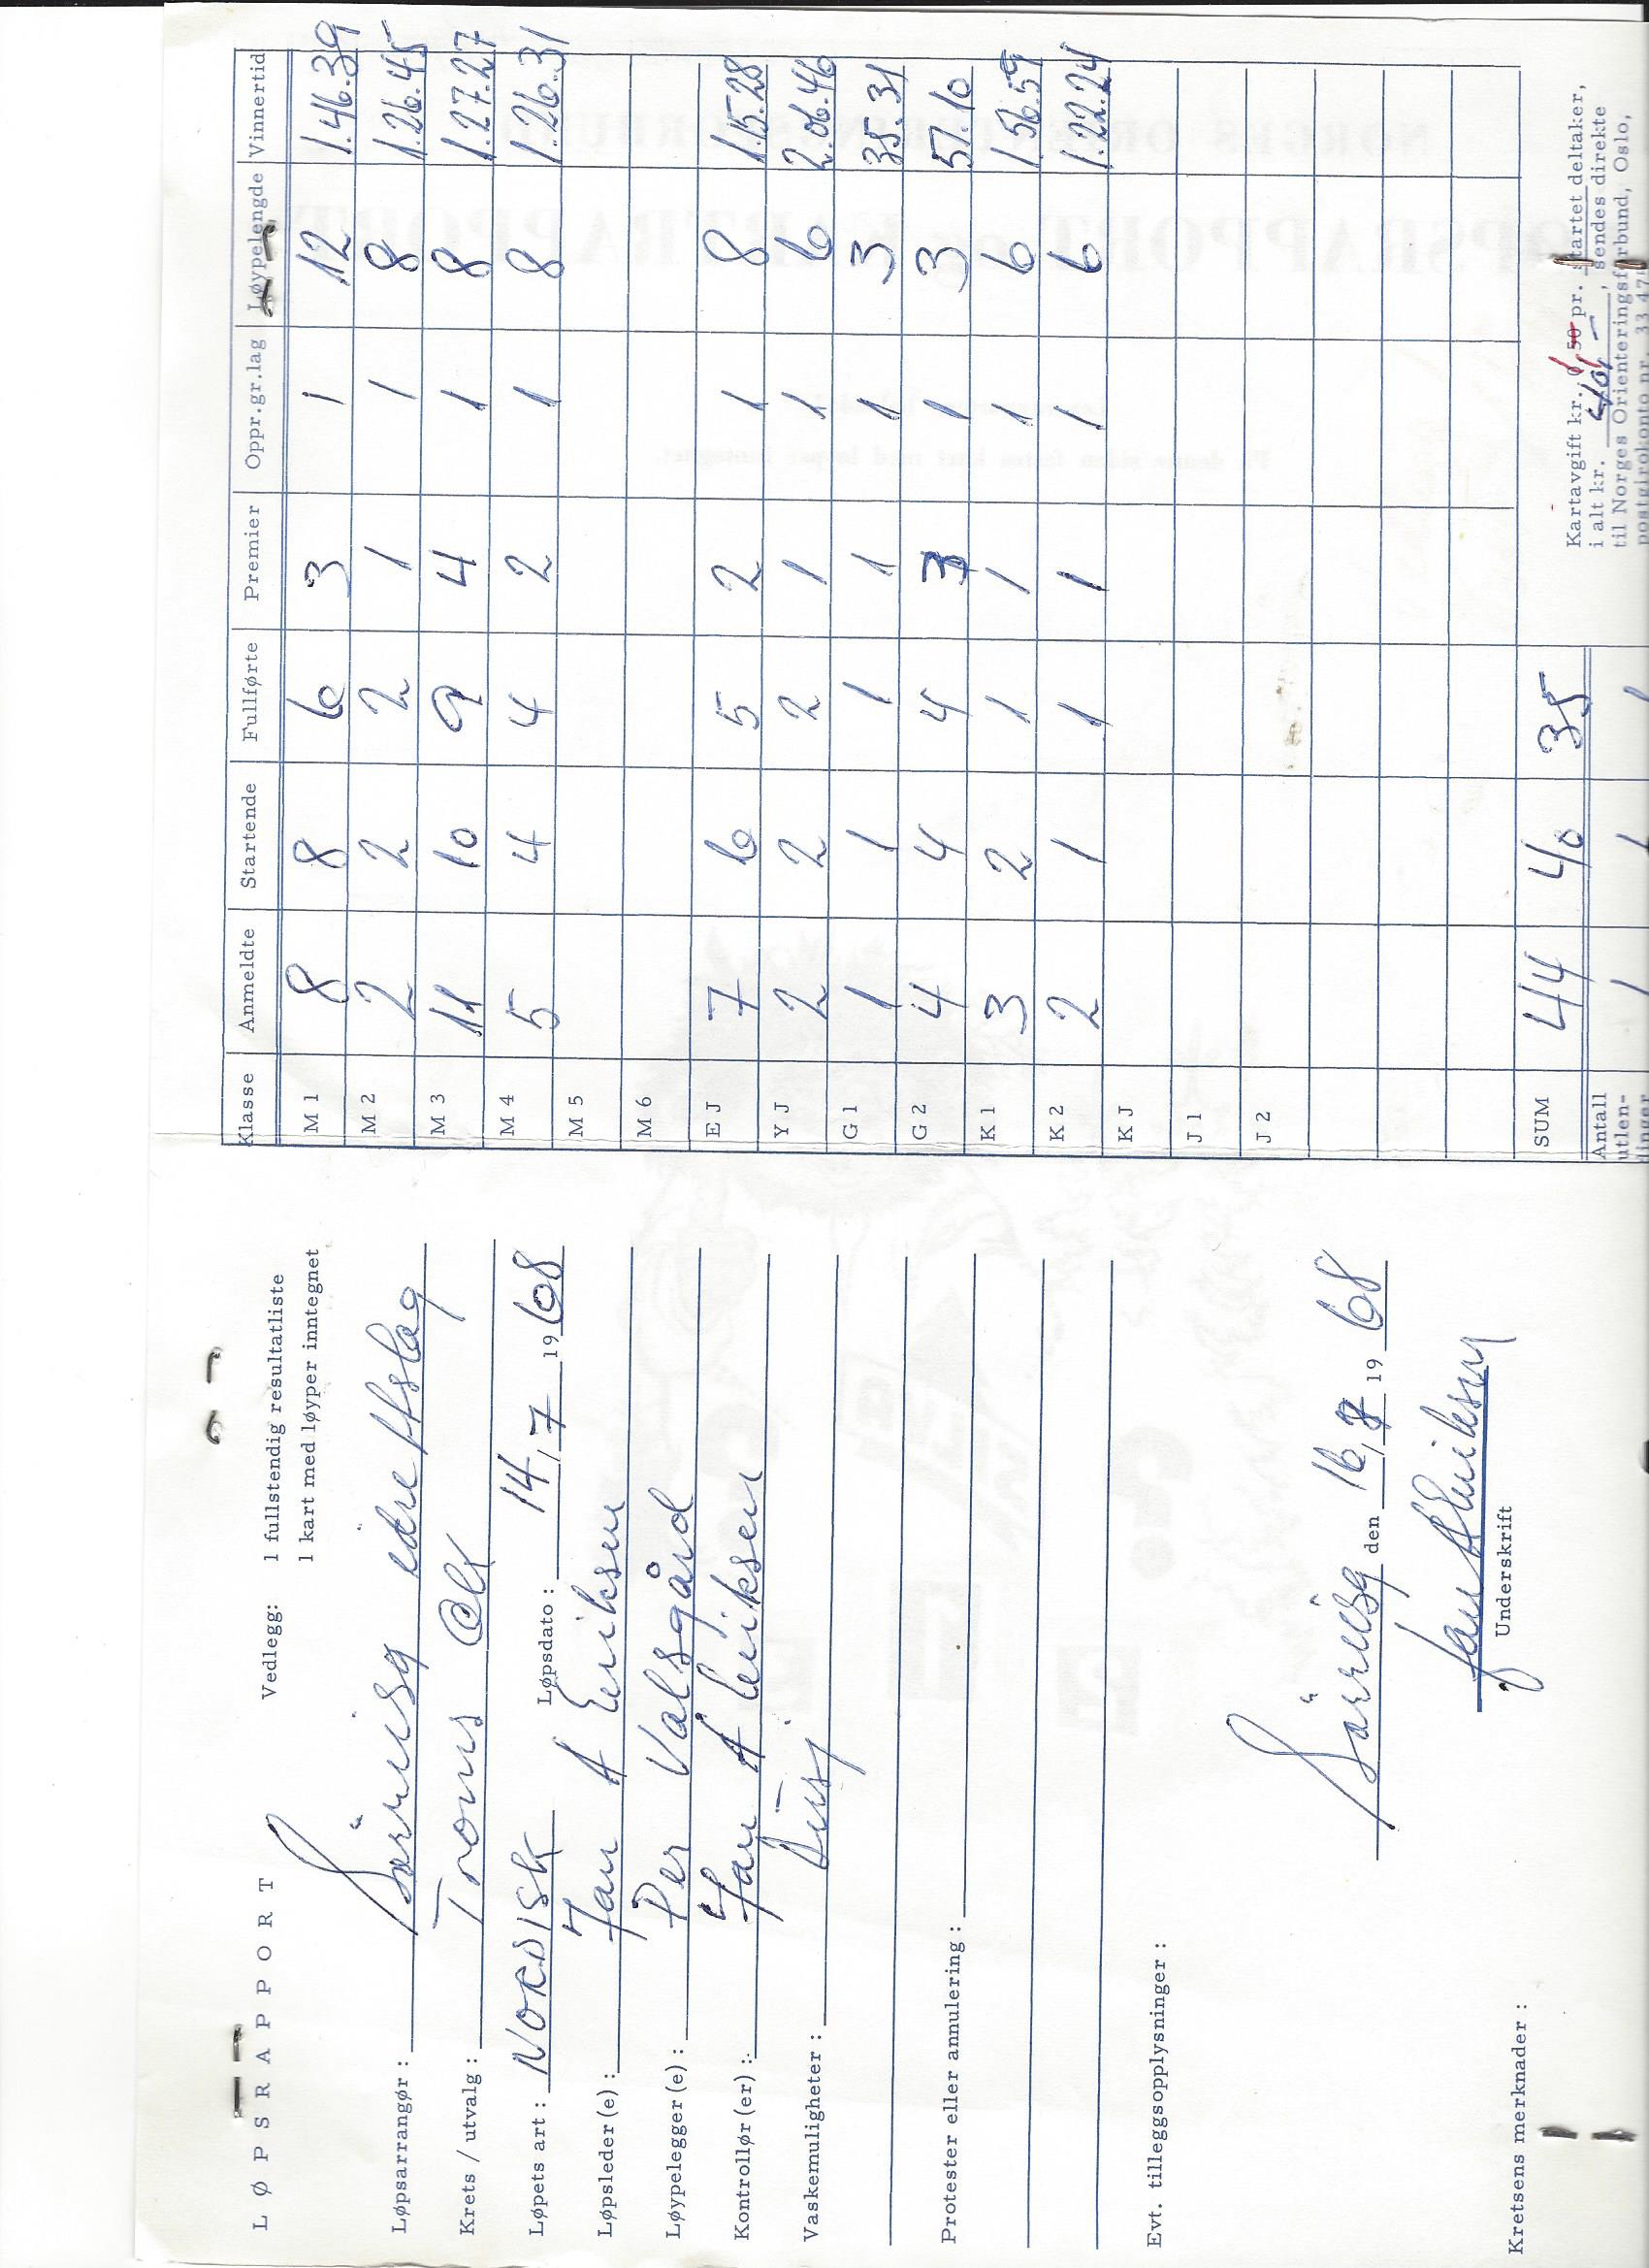 LØPSRAPPORT
Vedlegg: 1 fullstendig resultatliste
1 kart med løyper inntegnet
Løpsarrangør: idrettslag
Krets / utvalg: Troms
Løpets art: NORDISK Løpsdato: 14/7 1968
Løpsleder(e): Jan A Eriksen
Løypelegger(e): Per Valsgård
Kontrollør(er): Jan A Eriksen
Vaskemuligheter: Dusj
Protester eller annulering:
Evt. tilleggsopplysninger:
den 16/7 1968
Underskrift
Kretsens merknader:
Klasse Anmeldte Startende Fullførte Premier Oppr.gr.lag Løypelengde Vinnertid
M 1 8 8 6 3 1 12 1.46.39
M 2 2 2 2 1 1 8 1.26.45
M 3 11 10 9 4 1 8 1.27.27
M 4 5 4 4 2 1 8 1.26.31
M 5
M 6
E J 7 6 5 2 1 8 1.15.28
Y J 2 2 2 1 1 6 2.06.46
G 1 1 1 1 1 1 3 35.31
G 2 4 4 4 3 1 3 57.10
K 1 3 2 1 1 1 6 1.56.59
K 2 2 1 1 1 1 6 1.22.24
K J
J 1
J 2
SUM 44 40 35
Antall utlen- / / /
Kartavgift kr. pr. startet deltaker,
i alt kr. 40,- , sendes direkte
til Norges Orienteringsforbund, Oslo,
postgirokonto nr. 33 47